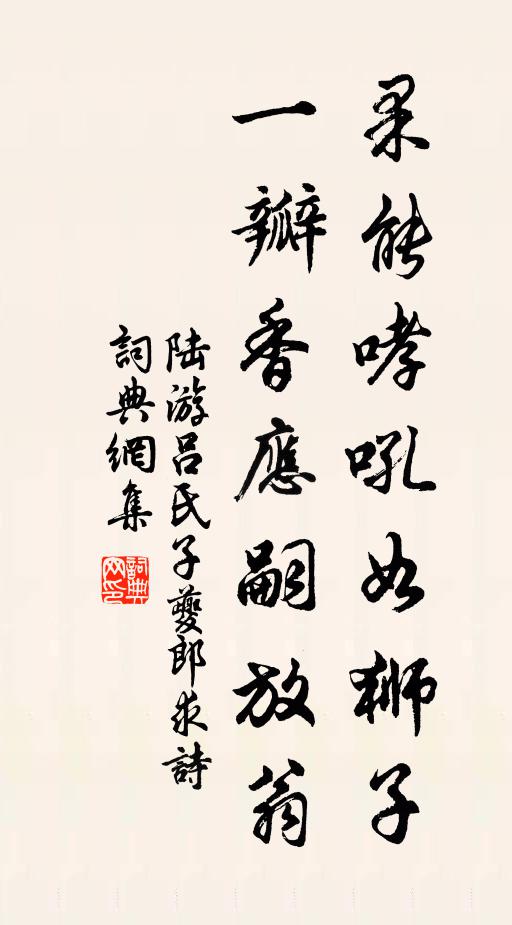 果能哮吼如獅子
一瓣香應嗣放翁
陆游吕氏子夔郎求詩
詞典網集
詞典网印